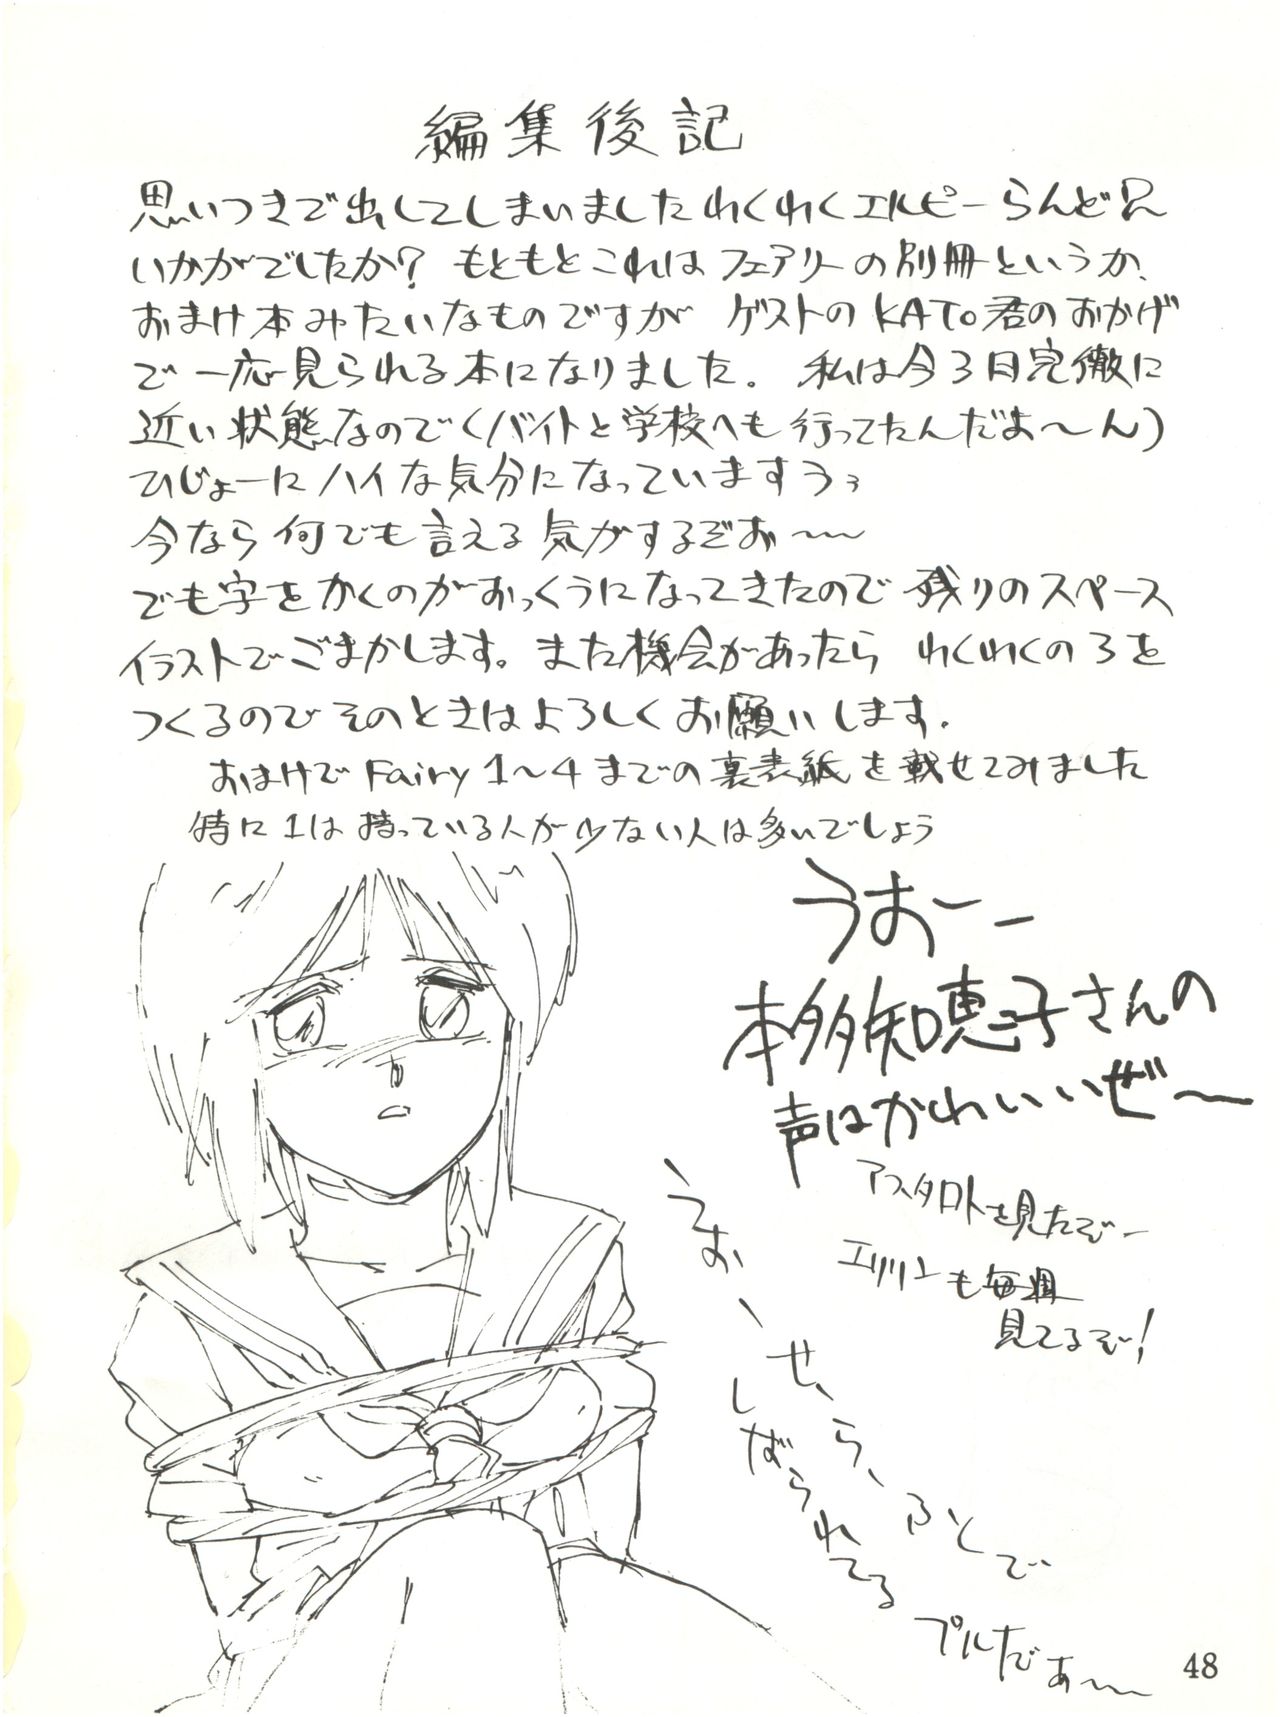 編集後記
思いつきで出してしまいましたわくわくエルピーらんど2
いかがでしたか? もともとこれはフェアリーの別冊というか、
おまけ本みたいなものですが ゲストのKATo君のおかげ
で一応見られる本になりました。 私は今3日完徹に
近い状態なので(バイトと学校へも行ってたんだよ〜ん)
ひじょーにハイな気分になっていますうぅ
今なら何でも言える気がするぞお〜〜
でも字をかくのがおっくうになってきたので 残りのスペース
イラストでごまかします。また機会があったら わくわくの3を
つくるので そのときはよろしくお願いします。
おまけで Fairy 1〜4までの裏表紙を載せてみました
特に1は持っている人が少ない人は多いでしょう
うおーー
本多知恵子さんの
声はかわいいぜ〜
アスタロトを見たぞー
エリリンも毎週
見てるぞ!
うお〜
せ、ら、ふくで
しばられてる
プルだあ〜〜
48